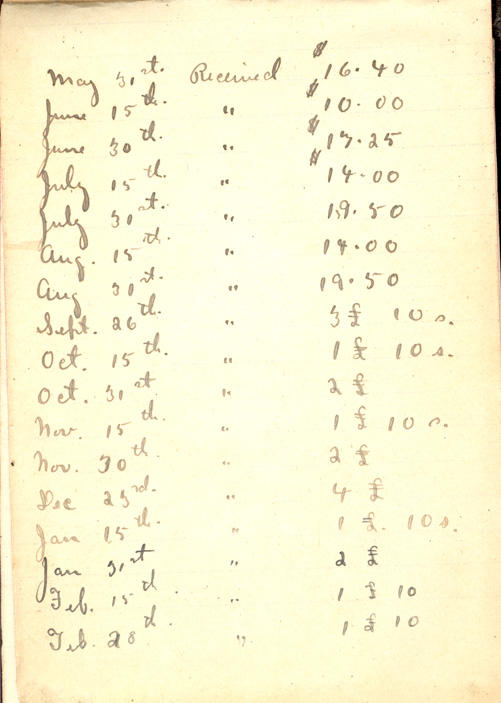 May 31st. Received $16.40
June 15th. " $10.00
June 30th. " $17.25
July 15th. " $14.00
July 31st. " 19.50
Aug. 15th. " 14.00
Aug 31st. " 19.50
Sept. 26th. " 3 £ 10 s.
Oct. 15th. " 1 £ 10 s.
Oct. 31st " 2 £
Nov. 15th. " 1 £ 10 s.
Nov. 30th. " 2 £
Dec 23rd. " 4 £
Jan 15th. " 1 £. 10s.
Jan 31st " 2 £
Feb. 15th. " 1 £ 10
Feb. 28th. " 1 £ 10